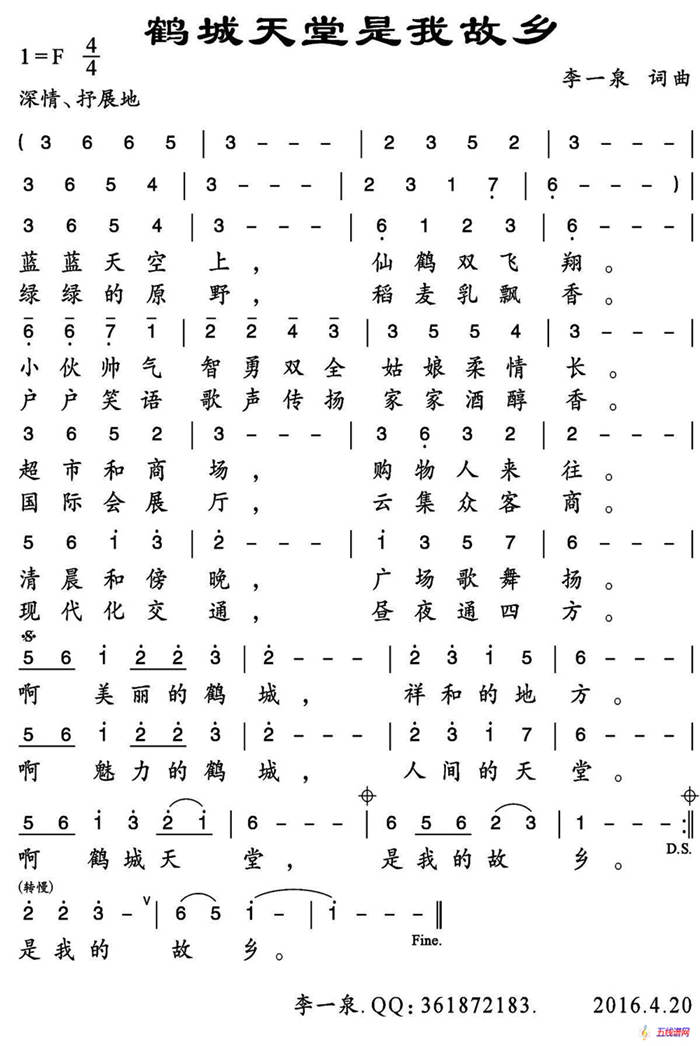 鹤城天堂是我故乡
1=F 4/4
李一泉 词曲
深情、抒展地
( 3 6 6 5 | 3 - - - | 2 3 5 2 | 3 - - - |
3 6 5 4 | 3 - - - | 2 3 1 7̣ | 6̣ - - - ) |
3 6 5 4 | 3 - - - | 6̣ 1 2 3 | 6̣ - - - |
蓝蓝天空上， 仙鹤双飞翔。
绿绿的原野， 稻麦乳飘香。
6̣ 6̣ 7̣ 1 | 2 2 4 3 | 3 5 5 4 | 3 - - - |
小伙帅气 智勇双全 姑娘柔情长。
户户笑语 歌声传扬 家家酒醇香。
3 6 5 2 | 3 - - - | 3 6̣ 3 2 | 2 - - - |
超市和商场， 购物人来往。
国际会展厅， 云集众客商。
5 6 i 3̇ | 2̇ - - - | i 3 5 7 | 6 - - - |
清晨和傍晚， 广场歌舞扬。
现代化交通， 昼夜通四方。
5 6 i 2̇ 2̇ 3̇ | 2̇ - - - | 2̇ 3̇ i 5 | 6 - - - |
啊 美丽的鹤城， 祥和的地方。
5 6 i 2̇ 2̇ 3̇ | 2̇ - - - | 2̇ 3̇ i 7 | 6 - - - |
啊 魅力的鹤城， 人间的天堂。
5 6 i 3̇ 2̇ i | 6 - - - | 6 5 6 2 3 | 1 - - - :‖
D.S.
啊 鹤城天堂， 是我的故乡。
(转慢)
2̇ 2̇ 3̇ - ∨ | 6 5 i - | i - - - ‖
Fine.
是我的故乡。
李一泉.QQ:361872183. 2016.4.20
五线谱网